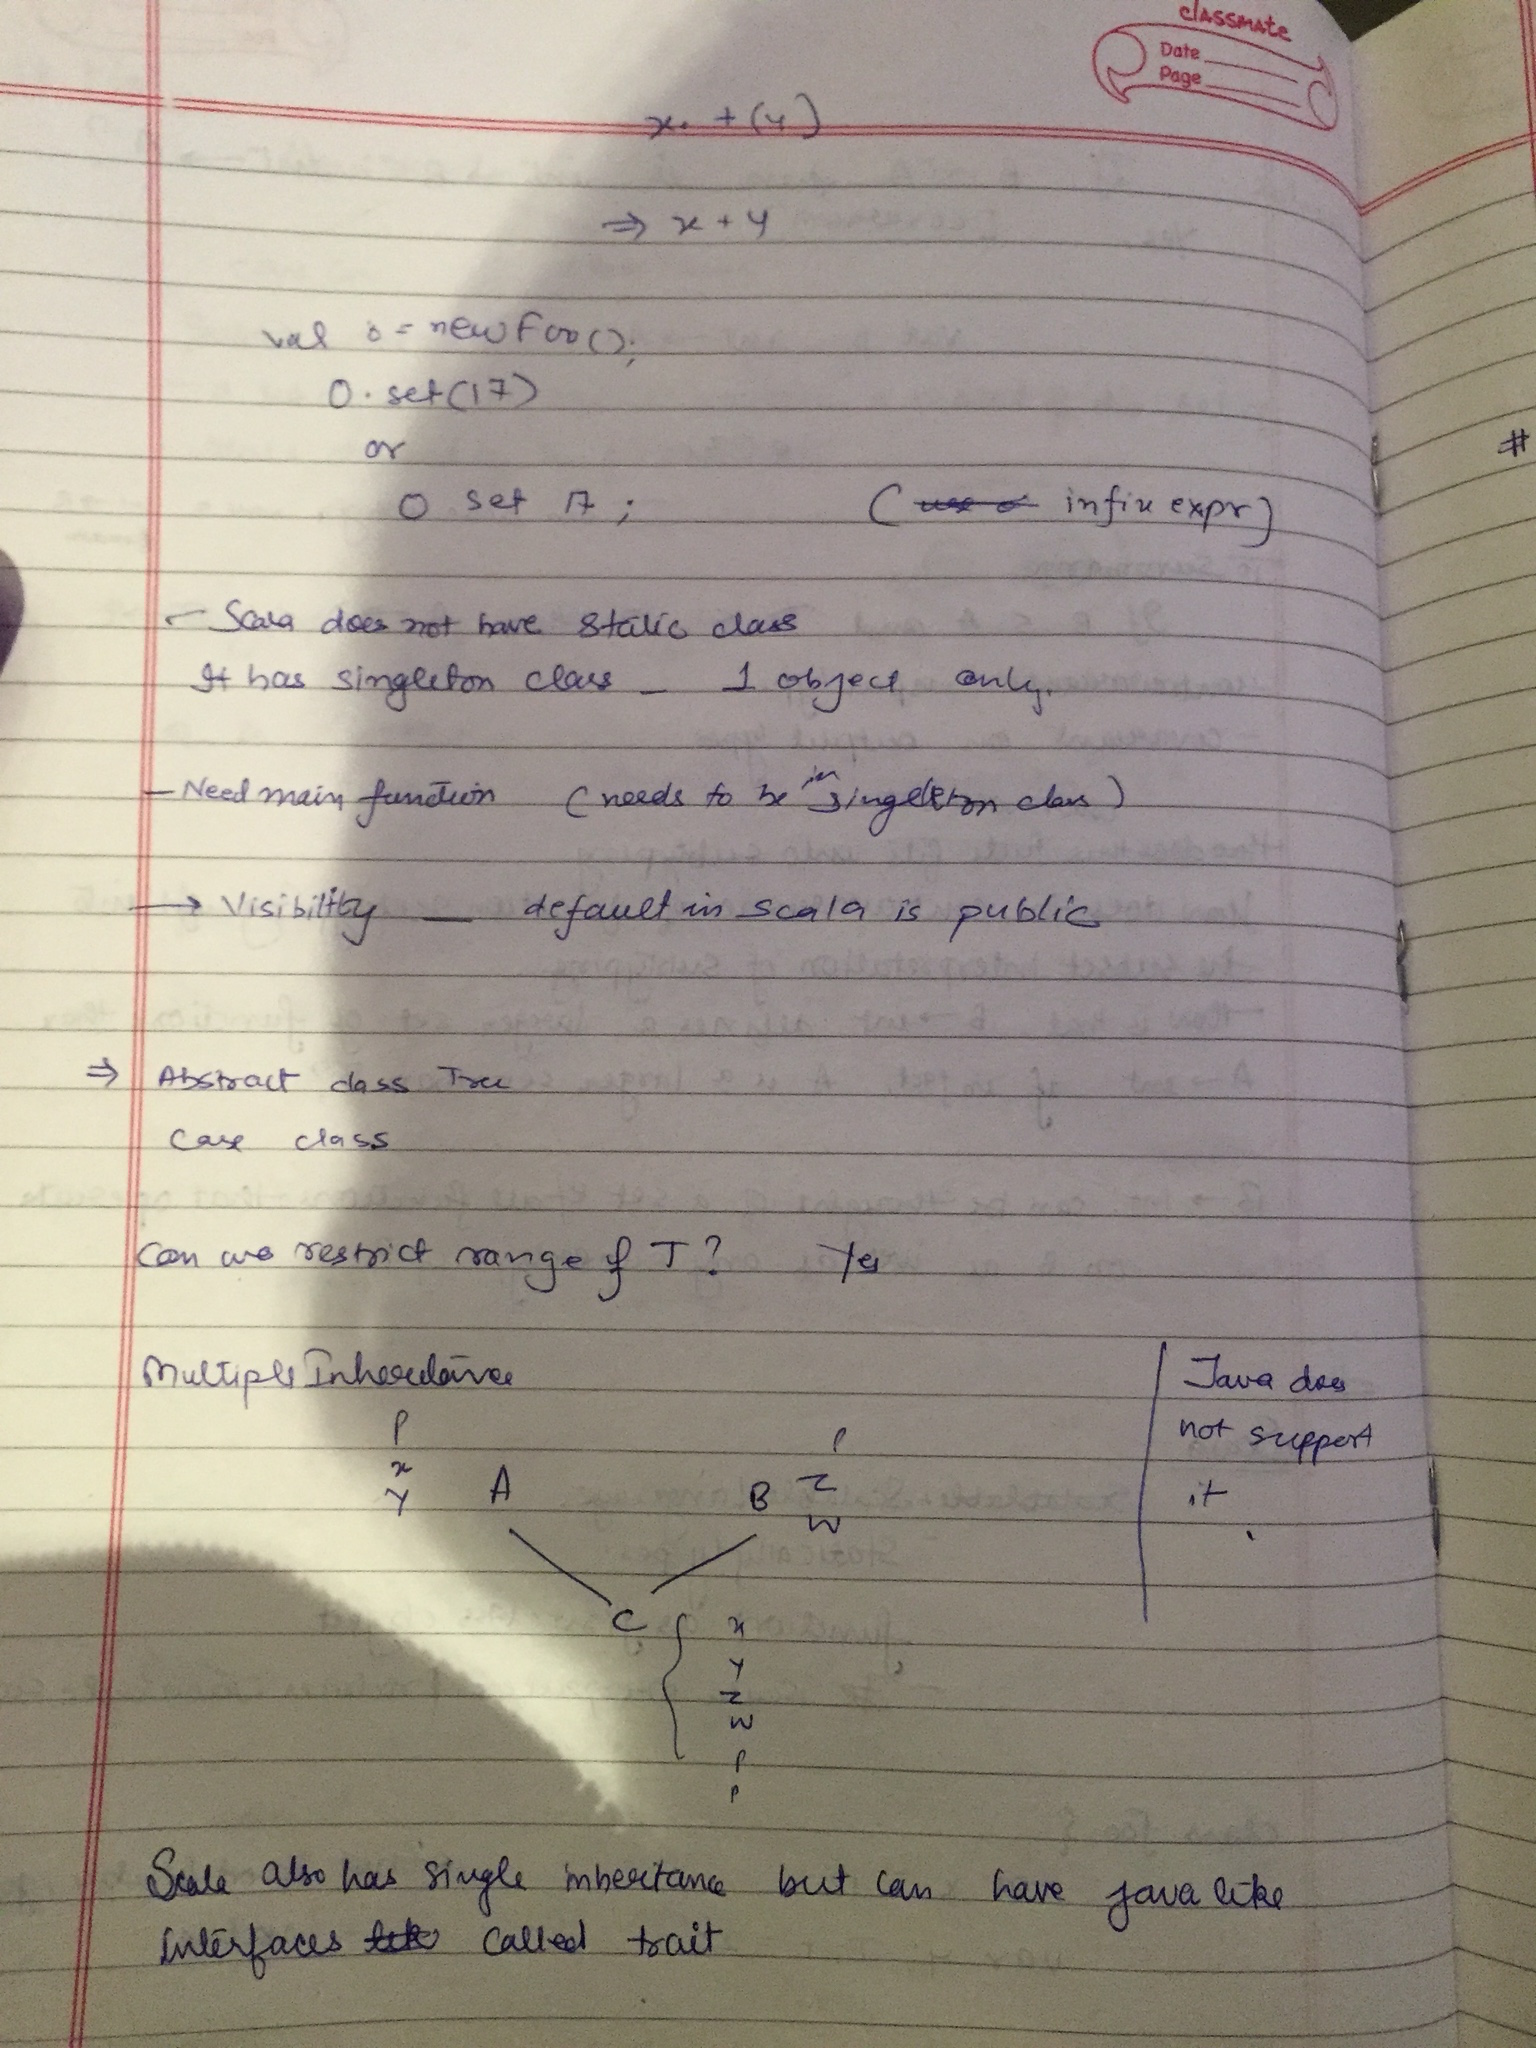 classmate
Date
Page
x. +(y)
⇒ x + y
val o = new Foo();
O. set(17)
or
O set 17 ;          ( infix expr)
- Scala does not have static class
It has singleton class - 1 object only.
- Need main function (needs to be in singleton class)
→ Visibility — default in scala is public
⇒ Abstract class Tree
Case class
Can we restrict range of T? Yes
Multiple Inheritance
P
x
Y
A
B
P
Z
W
C
x
Y
Z
W
P
P
Java does
not support
it .
#
Scala also has single inheritance but can have java like
Interfaces called trait